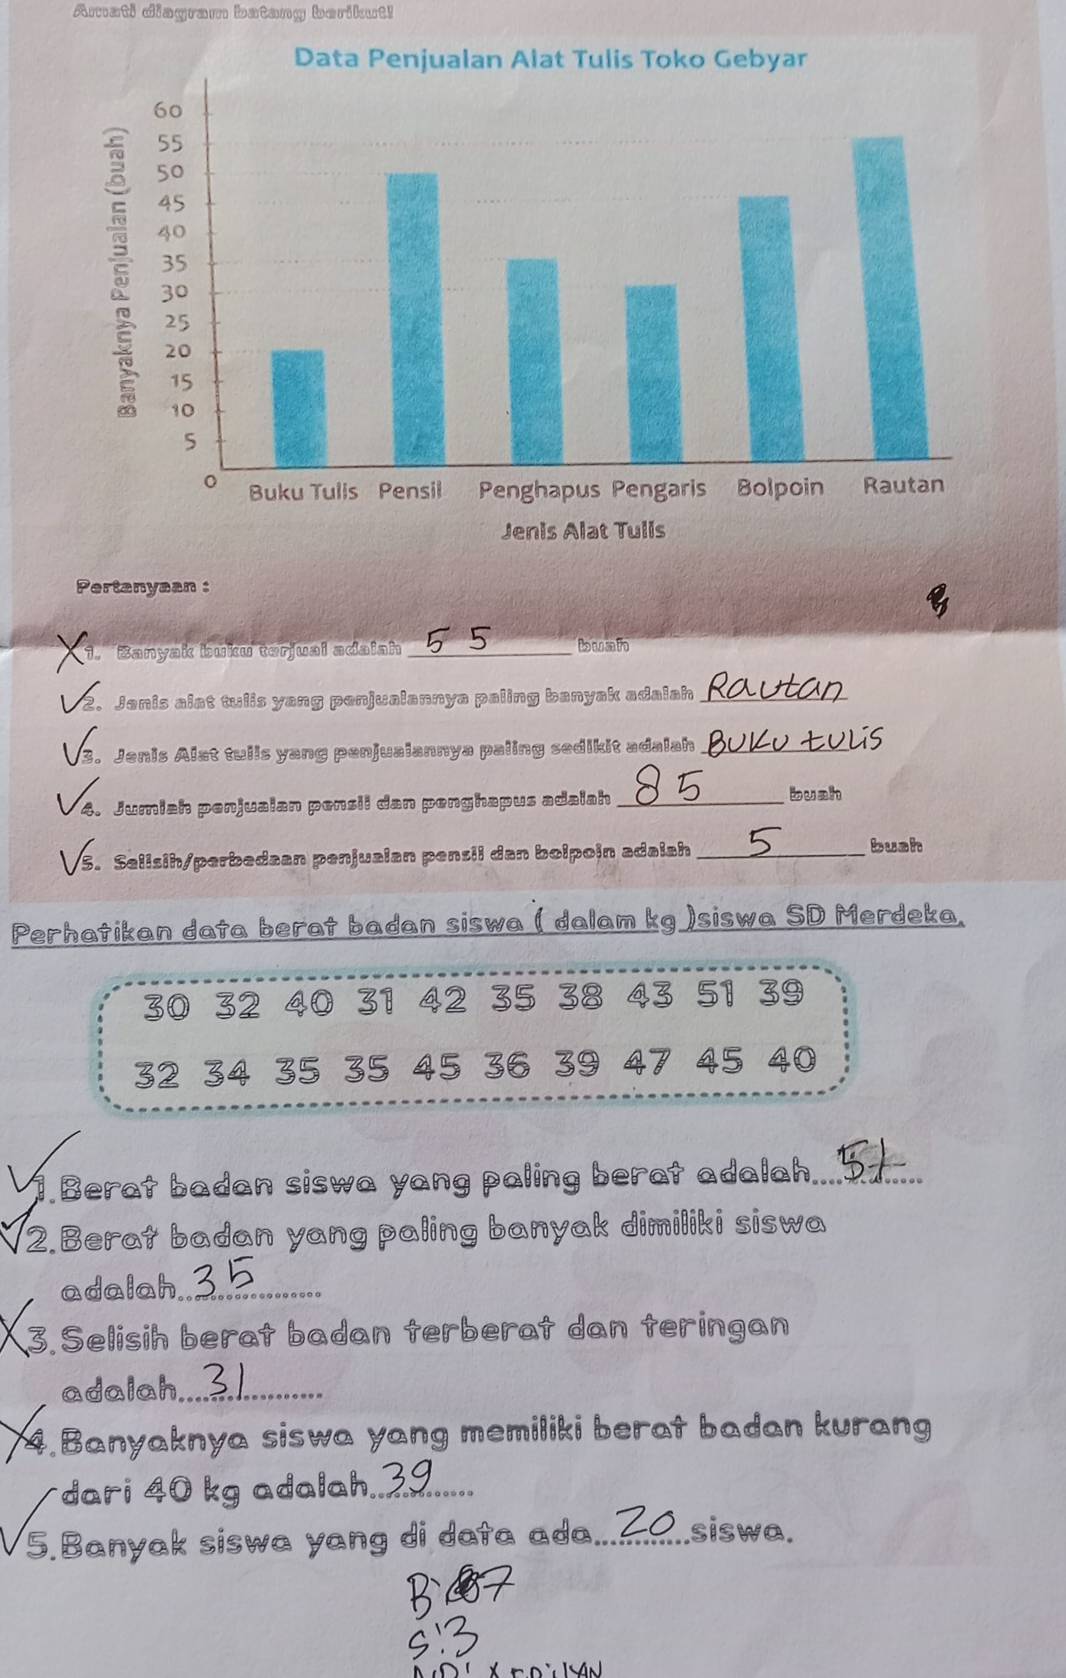 Amati diagram batang berikut!
Data Penjualan Alat Tulis Toko Gebyar
Banyaknya Penjualan (buah)
60
55
50
45
40
35
30
25
20
15
10
5
0
Buku Tulis Pensil Penghapus Pengaris Bolpoin Rautan
Jenis Alat Tulis
Pertanyaan :
X 1. Banyak buku terjual adalah 55 buah
√ 2. Jenis alat tulis yang penjualannya paling banyak adalah Rautan
√ 3. Jenis Alat tulis yang penjualannya paling sedikit adalah BUKU tULiS
√ 4. Jumlah penjualan pensil dan penghapus adalah 85 buah
√ 5. Selisih/perbedaan penjualan pensil dan bolpoin adalah 5 buah
Perhatikan data berat badan siswa ( dalam kg )siswa SD Merdeka.
30 32 40 31 42 35 38 43 51 39
32 34 35 35 45 36 39 47 45 40
√ 1.Berat badan siswa yang paling berat adalah....51.....
√ 2.Berat badan yang paling banyak dimiliki siswa
adalah..35..........
X 3.Selisih berat badan terberat dan teringan
adalah....31..........
X 4.Banyaknya siswa yang memiliki berat badan kurang
dari 40 kg adalah..39......
√ 5.Banyak siswa yang di data ada...20...siswa.
B: 7
S:3